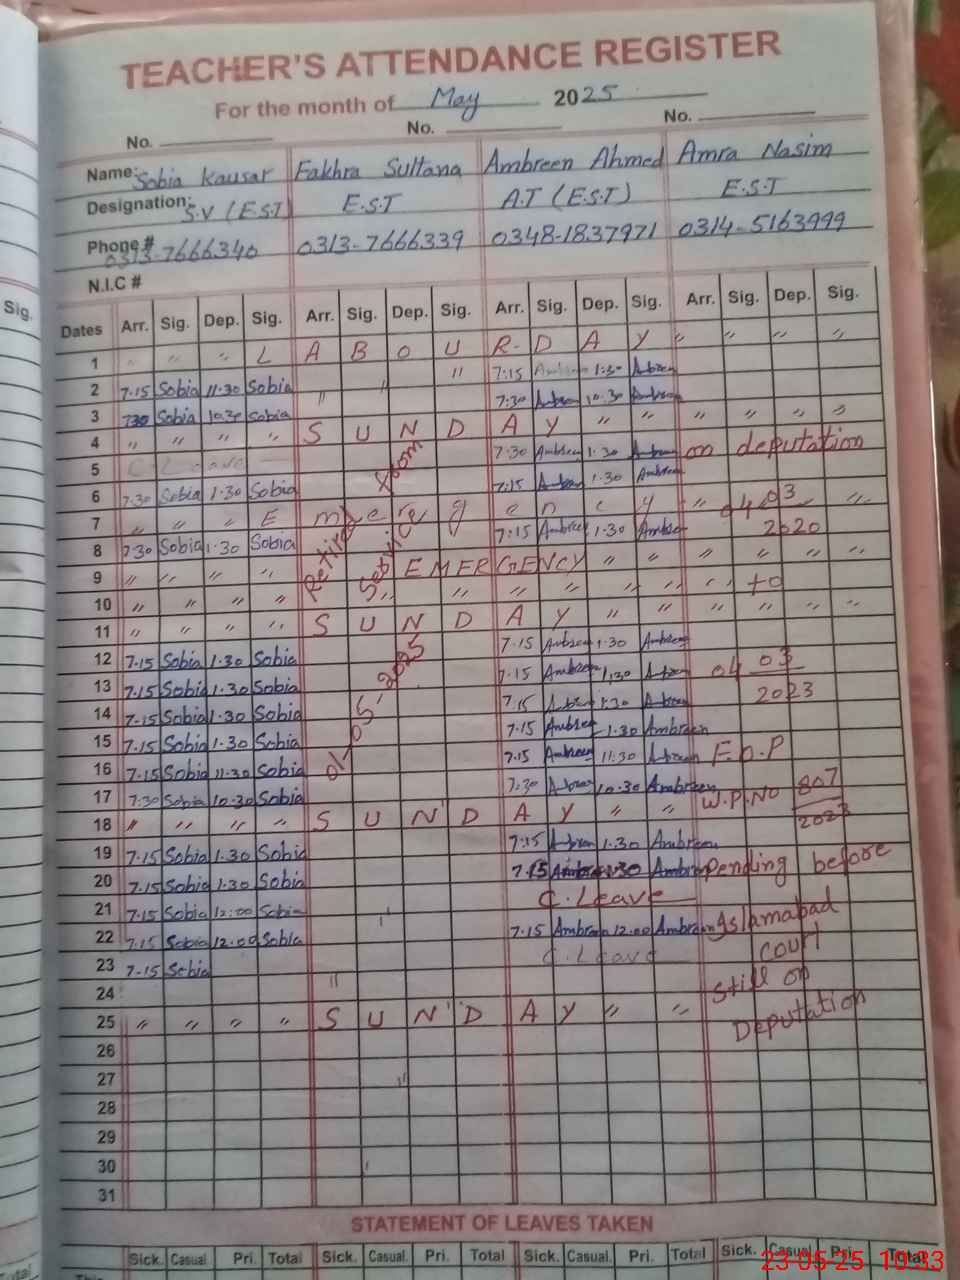 TEACHER'S ATTENDANCE REGISTER
For the month of May 2025
No. No. No.
Name: Sobia Kausar Fakhra Sultana Ambreen Ahmed Amra Nasim
Designation: S.V (E.S.T) E.S.T A.T (E.S.T) E.S.T
Phone # 0313-7666340 0313-7666339 0348-1837971 0314-5163999
N.I.C #
Sig.
Dates Arr. Sig. Dep. Sig. Arr. Sig. Dep. Sig. Arr. Sig. Dep. Sig. Arr. Sig. Dep. Sig.
1 " " L A B O U R - D A Y " " " "
2 7.15 Sobia 11.30 Sobia " " 7:15 1:30 Ambreen
3 730 Sobia 10.30 Sobia " 7:30 Ambreen 10.30 Ambreen
4 " " " " S U N D A Y " " " " " "
5 C Leave 7:30 Ambreen 1.30 Ambreen on deputation
6 7.30 Sobia 1.30 Sobia 7:15 Ambreen 1.30 Ambreen
7 " " " E m e r g e n c y " 04.03 "
8 730 Sobia 1.30 Sobia 7:15 Ambreen 1:30 Ambreen 2020
9 " " " " E M E R G E N C Y " " " " " "
10 " " " " " " " " " " " to
11 " " " " S U N D A Y " " " " " "
Retired from Service 01-05-2025
12 7.15 Sobia 1.30 Sobia 7.15 Ambreen 1.30 Ambreen
13 7.15 Sobia 1.30 Sobia 7.15 Ambreen 1.30 Ambreen 04 03
14 7.15 Sobia 1.30 Sobia 7.15 Ambreen 1.30 Ambreen 2023
15 7.15 Sobia 1.30 Sobia 7.15 Ambreen 1.30 Ambreen
16 7.15 Sobia 11.30 Sobia 7.15 Ambreen 11:30 Ambreen F.O.P
17 7:30 Sobia 10.30 Sobia 7:30 Ambreen 10.30 Ambreen W.P.NO 807
18 " " " " S U N D A Y " " 2023
19 7.15 Sobia 1.30 Sobia 7:15 Ambreen 1.30 Ambreen
20 7.15 Sobia 1.30 Sobia 7.15 Ambreen 1.30 Ambreen Pending before
21 7.15 Sobia 12:00 Sobia C. Leave
22 7.15 Sobia 12.00 Sobia 7.15 Ambreen 12.00 Ambreen Islamabad
23 7.15 Sobia C. Leave court
24 " still on
25 " " " " S U N D A Y " " Deputation
26
27 "
28
29
30
31
STATEMENT OF LEAVES TAKEN
Sick. Casual. Pri. Total Sick. Casual. Pri. Total Sick. Casual. Pri. Total Sick. Casual. Pri. Total
23-05-25 10:33